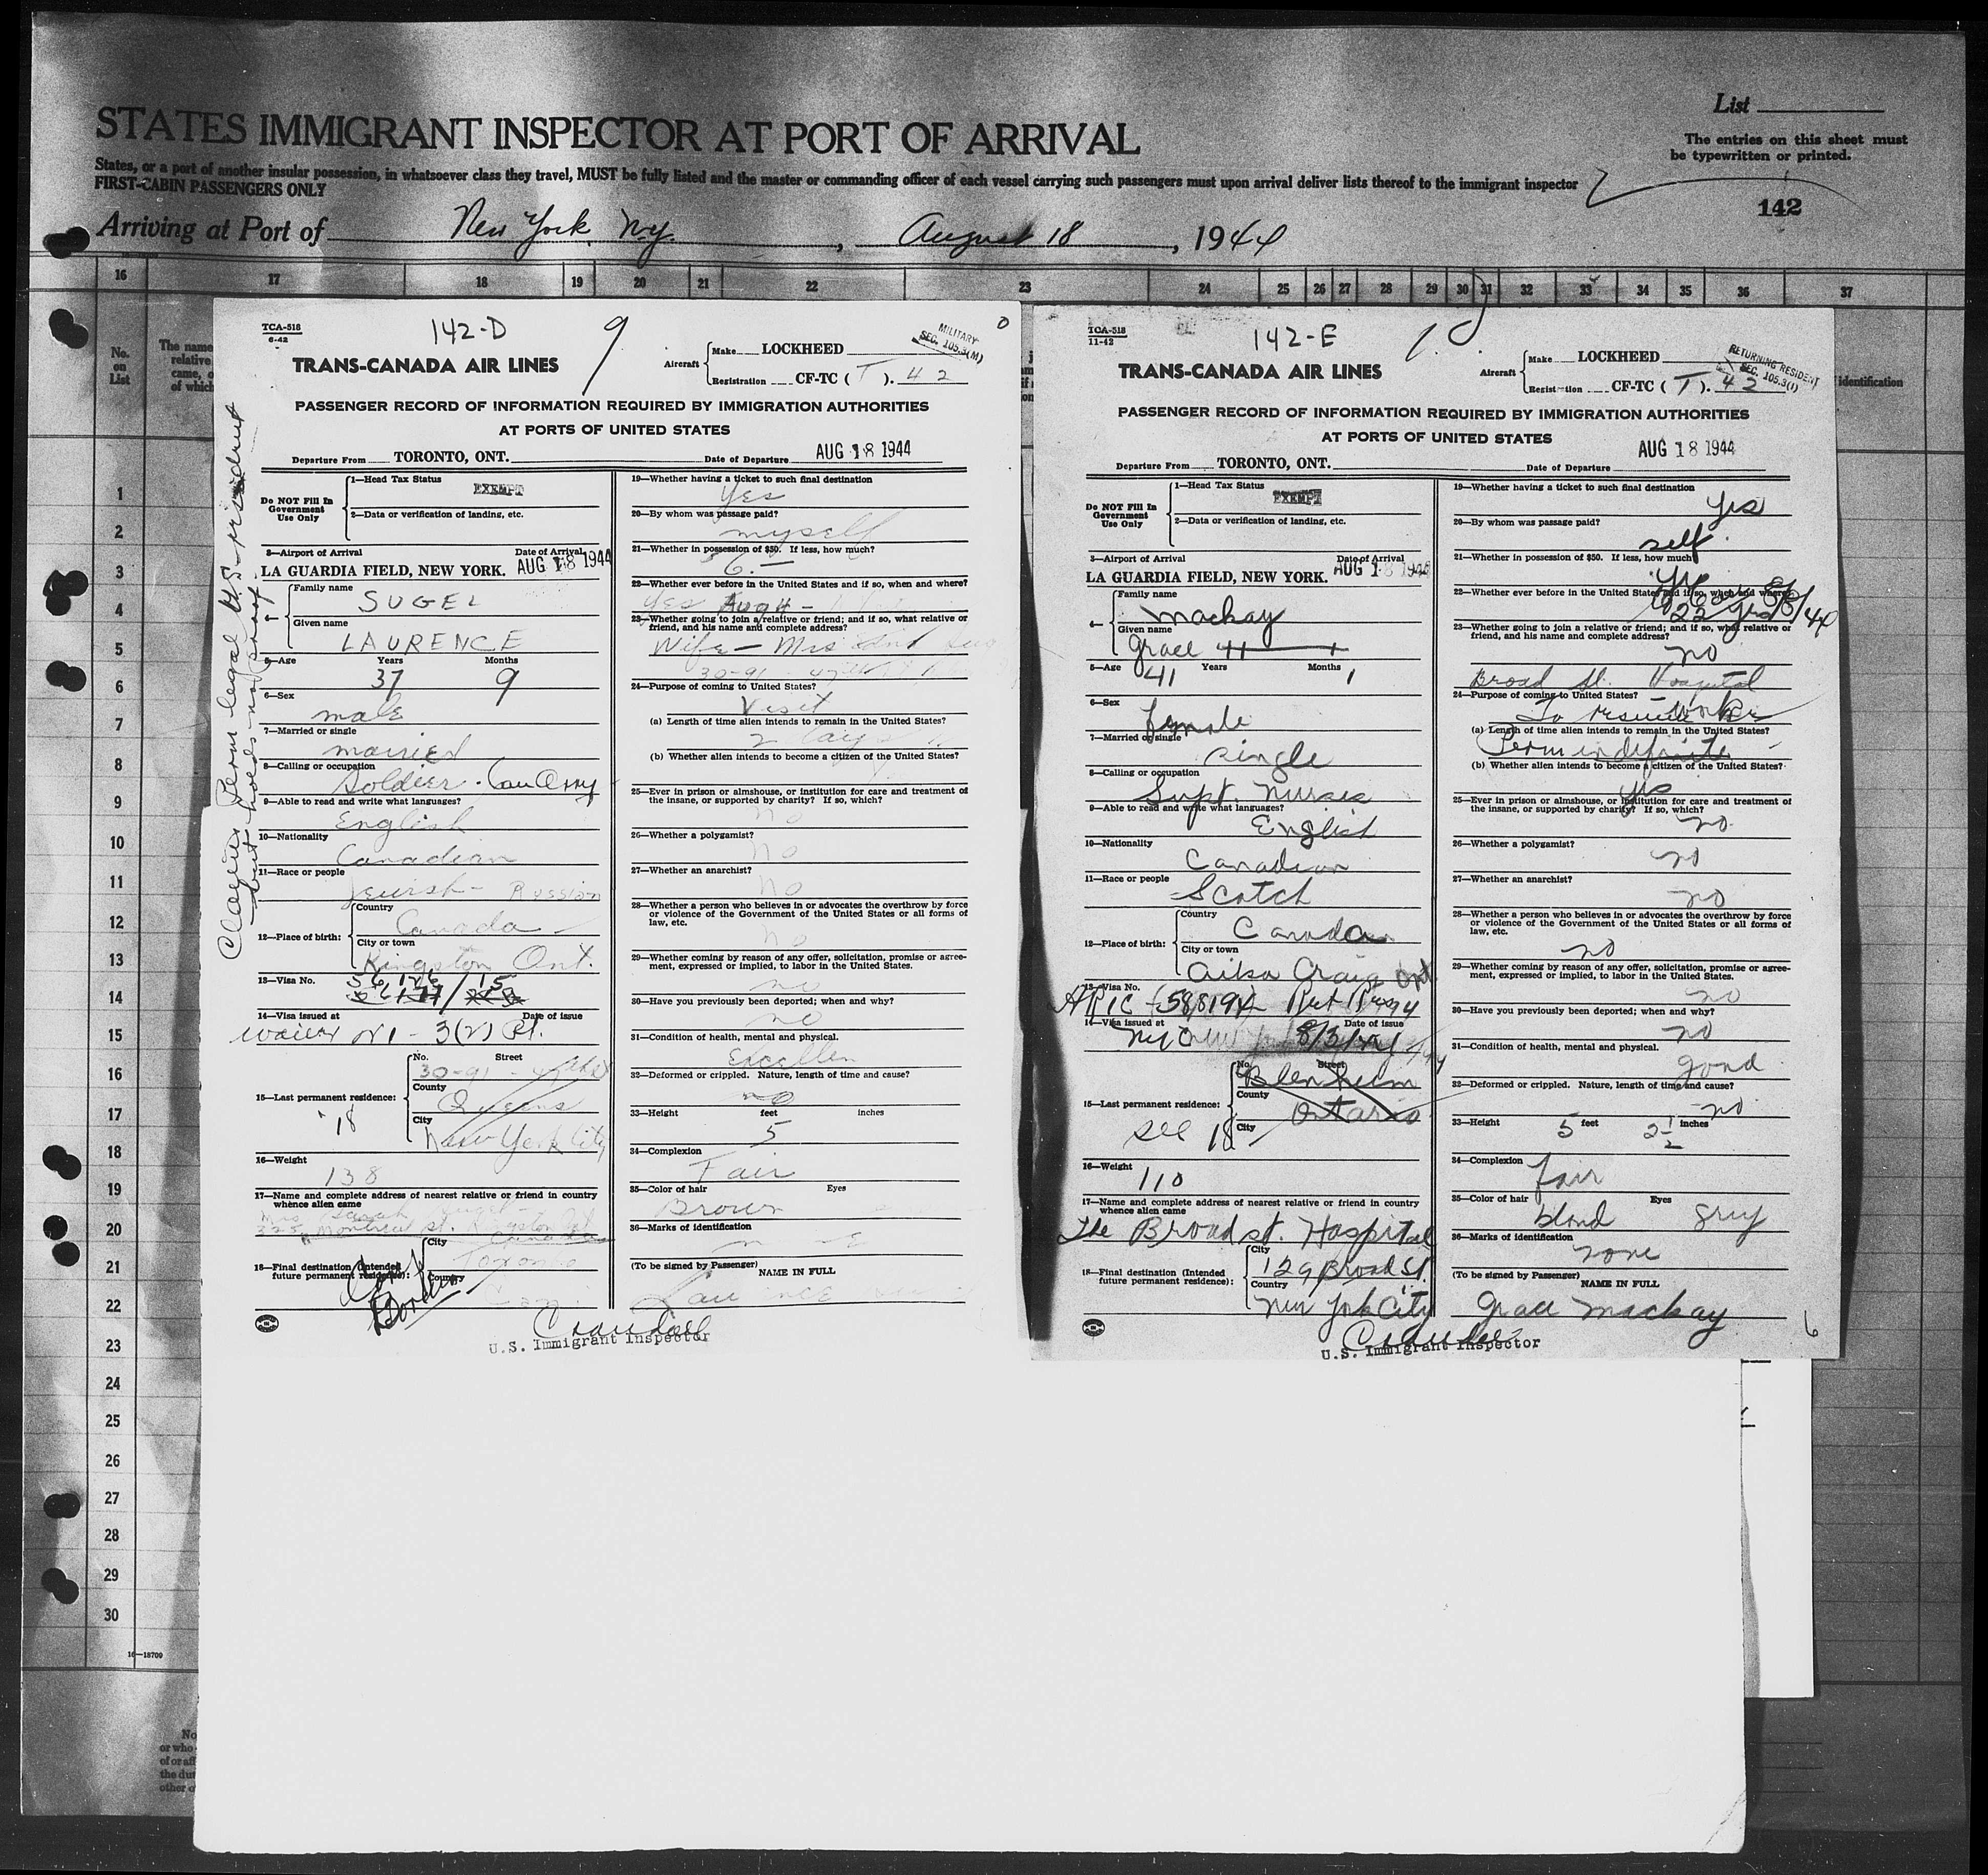 List
STATES IMMIGRANT INSPECTOR AT PORT OF ARRIVAL
The entries on this sheet must
be typewritten or printed.
States, or a port of another insular possession, in whatsoever class they travel, MUST be fully listed and the master or commanding officer of each vessel carrying such passengers must upon arrival deliver lists thereof to the immigrant inspector
FIRST-CABIN PASSENGERS ONLY
142
Arriving at Port of New York, N.Y. , August 18 , 1944
16 17 18 19 20 21 22 23 24 25 26 27 28 29 30 31 32 33 34 35 36 37
No.
on
List
The name
relative
came, o
of which
identification
1
2
3
4
5
6
7
8
9
10
11
12
13
14
15
16
17
18
19
20
21
22
23
24
25
26
27
28
29
30
16—18709
No
or who
of or aff
the dut
other o
TCA-518
6-42
142-D
9
MILITARY
SEC. 105.3(M)
TRANS-CANADA AIR LINES
Aircraft
Make LOCKHEED
Registration CF-TC ( T ). 42
PASSENGER RECORD OF INFORMATION REQUIRED BY IMMIGRATION AUTHORITIES
AT PORTS OF UNITED STATES
Departure From TORONTO, ONT. Date of Departure AUG 18 1944
Do NOT Fill In
Government
Use Only
1—Head Tax Status EXEMPT
2—Data or verification of landing, etc.
3—Airport of Arrival Date of Arrival
LA GUARDIA FIELD, NEW YORK. AUG 18 1944
Family name
SUGEL
Given name
LAURENCE
5—Age Years Months
37 9
6—Sex
male
7—Married or single
married
8—Calling or occupation
Soldier - Can Army
9—Able to read and write what languages?
English
10—Nationality
Canadian
11—Race or people
Jewish - Russian
12—Place of birth:
Country
Canada
City or town
Kingston Ont.
13—Visa No.
14—Visa issued at Date of issue
Waiver N1 - 3(2) Pt.
15—Last permanent residence:
No. Street
30-91
County
Queens
City
New York City
18
16—Weight
138
17—Name and complete address of nearest relative or friend in country
whence alien came
Montreal St. Kingston
Canada
18—Final destination (Intended
future permanent residence):
City
Country
Camp
Borden
Claims Perm legal U.S. resident
but holds no proof
19—Whether having a ticket to such final destination
Yes
20—By whom was passage paid?
myself
21—Whether in possession of $50. If less, how much?
6.—
22—Whether ever before in the United States and if so, when and where?
Yes Aug 4 -
23—Whether going to join a relative or friend; and if so, what relative or
friend, and his name and complete address?
Wife — Mrs
30-91
24—Purpose of coming to United States?
Visit
(a) Length of time alien intends to remain in the United States?
2 days
(b) Whether alien intends to become a citizen of the United States?
25—Ever in prison or almshouse, or institution for care and treatment of
the insane, or supported by charity? If so, which?
no
26—Whether a polygamist?
no
27—Whether an anarchist?
No
28—Whether a person who believes in or advocates the overthrow by force
or violence of the Government of the United States or all forms of
law, etc.
no
29—Whether coming by reason of any offer, solicitation, promise or agree-
ment, expressed or implied, to labor in the United States.
no
30—Have you previously been deported; when and why?
no
31—Condition of health, mental and physical.
Excellen
32—Deformed or crippled. Nature, length of time and cause?
no
33—Height feet inches
5
34—Complexion
Fair
35—Color of hair Eyes
Brown
36—Marks of identification
(To be signed by Passenger) NAME IN FULL
U.S. Immigrant Inspector
TCA-518
11-42
142-E
10
RETURNING RESIDENT
SEC. 105.3(1)
TRANS-CANADA AIR LINES
Aircraft
Make LOCKHEED
Registration CF-TC ( T ). 42
PASSENGER RECORD OF INFORMATION REQUIRED BY IMMIGRATION AUTHORITIES
AT PORTS OF UNITED STATES
Departure From TORONTO, ONT. Date of Departure AUG 18 1944
Do NOT Fill In
Government
Use Only
1—Head Tax Status EXEMPT
2—Data or verification of landing, etc.
3—Airport of Arrival Date of Arrival
LA GUARDIA FIELD, NEW YORK. AUG 18 1944
Family name
Mackay
Given name
Grace
5—Age Years Months
41 1
6—Sex
female
7—Married or single
Single
8—Calling or occupation
Supt. Nurses
9—Able to read and write what languages?
English
10—Nationality
Canadian
11—Race or people
Scotch
12—Place of birth:
Country
Canada
City or town
Ailsa Craig Ont
13—Visa No.
14—Visa issued at Date of issue
15—Last permanent residence:
No. Street
Blenheim
County
Ontario
City
see 18
16—Weight
110
17—Name and complete address of nearest relative or friend in country
whence alien came
The Broad St. Hospital
18—Final destination (Intended
future permanent residence):
City
129 Broad St.
Country
New York City
19—Whether having a ticket to such final destination
Yes
20—By whom was passage paid?
self
21—Whether in possession of $50. If less, how much?
Yes
22—Whether ever before in the United States and if so, when and where?
22 yrs 8/3/44
23—Whether going to join a relative or friend; and if so, what relative or
friend, and his name and complete address?
no
Broad St. Hospital
24—Purpose of coming to United States?
To resume work
(a) Length of time alien intends to remain in the United States?
Perm indefinite
(b) Whether alien intends to become a citizen of the United States?
yes
25—Ever in prison or almshouse, or institution for care and treatment of
the insane, or supported by charity? If so, which?
no
26—Whether a polygamist?
no
27—Whether an anarchist?
no
28—Whether a person who believes in or advocates the overthrow by force
or violence of the Government of the United States or all forms of
law, etc.
no
29—Whether coming by reason of any offer, solicitation, promise or agree-
ment, expressed or implied, to labor in the United States.
no
30—Have you previously been deported; when and why?
no
31—Condition of health, mental and physical.
good
32—Deformed or crippled. Nature, length of time and cause?
no
33—Height 5 feet 2½ inches
34—Complexion
fair
35—Color of hair Eyes
blond grey
36—Marks of identification
none
(To be signed by Passenger) NAME IN FULL
Grace Mackay
U.S. Immigrant Inspector
6